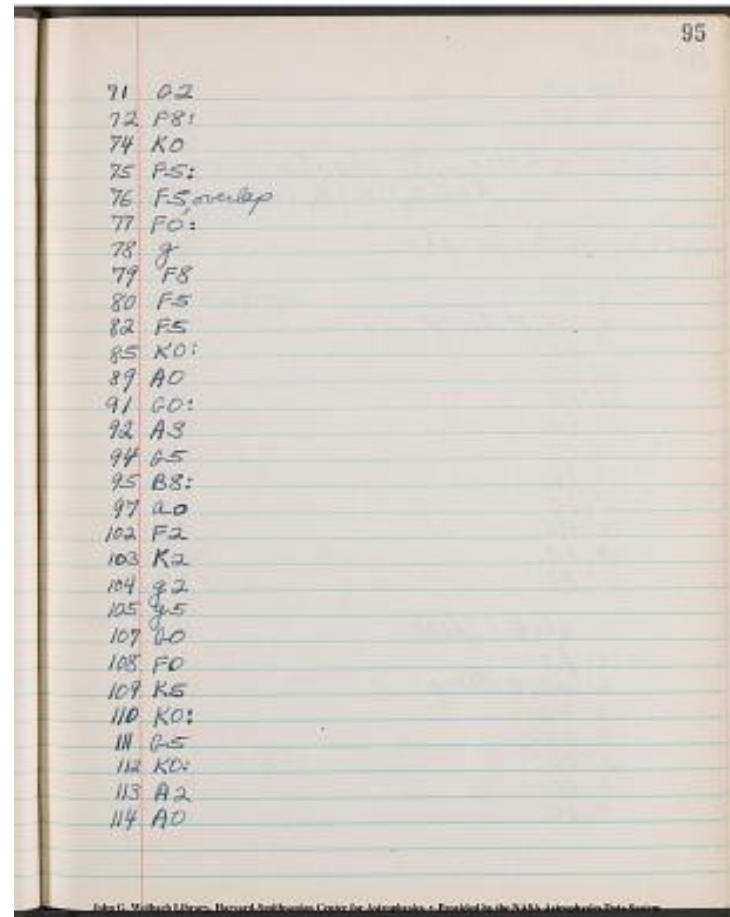 95
71 G2
72 F8:
74 K0
75 F5:
76 F5, overlap
77 F0:
78 g
79 F8
80 F5
82 F5
85 K0:
89 A0
91 G0:
92 A3
94 G5
95 B8:
97 a0
102 F2
103 K2
104 g2
105 g5
107 G0
108 F0
109 K5
110 K0:
111 G5
112 K0:
113 A2
114 A0
John G. Wolbach Library, Harvard-Smithsonian Center for Astrophysics • Provided by the NASA Astrophysics Data System